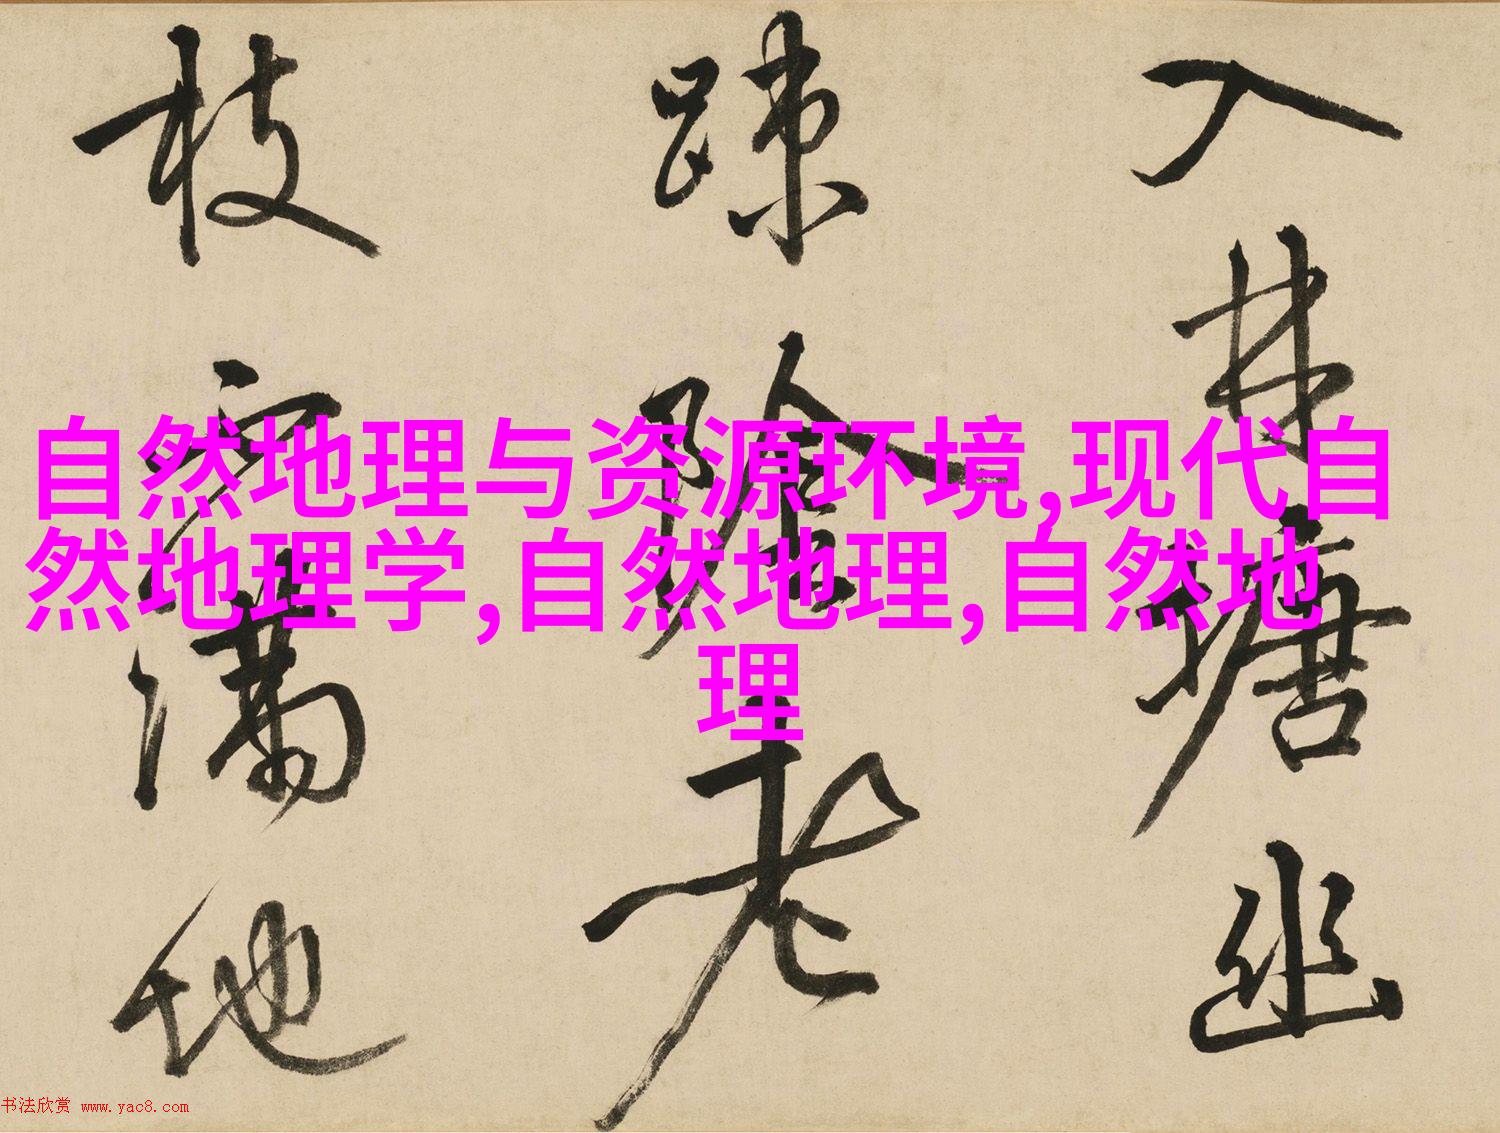 入林塘幽
疎陰老
枝寒滿地
自然地理与资源环境,现代自
然地理学,自然地理,自然地
理
书法欣赏 www.yac8.com